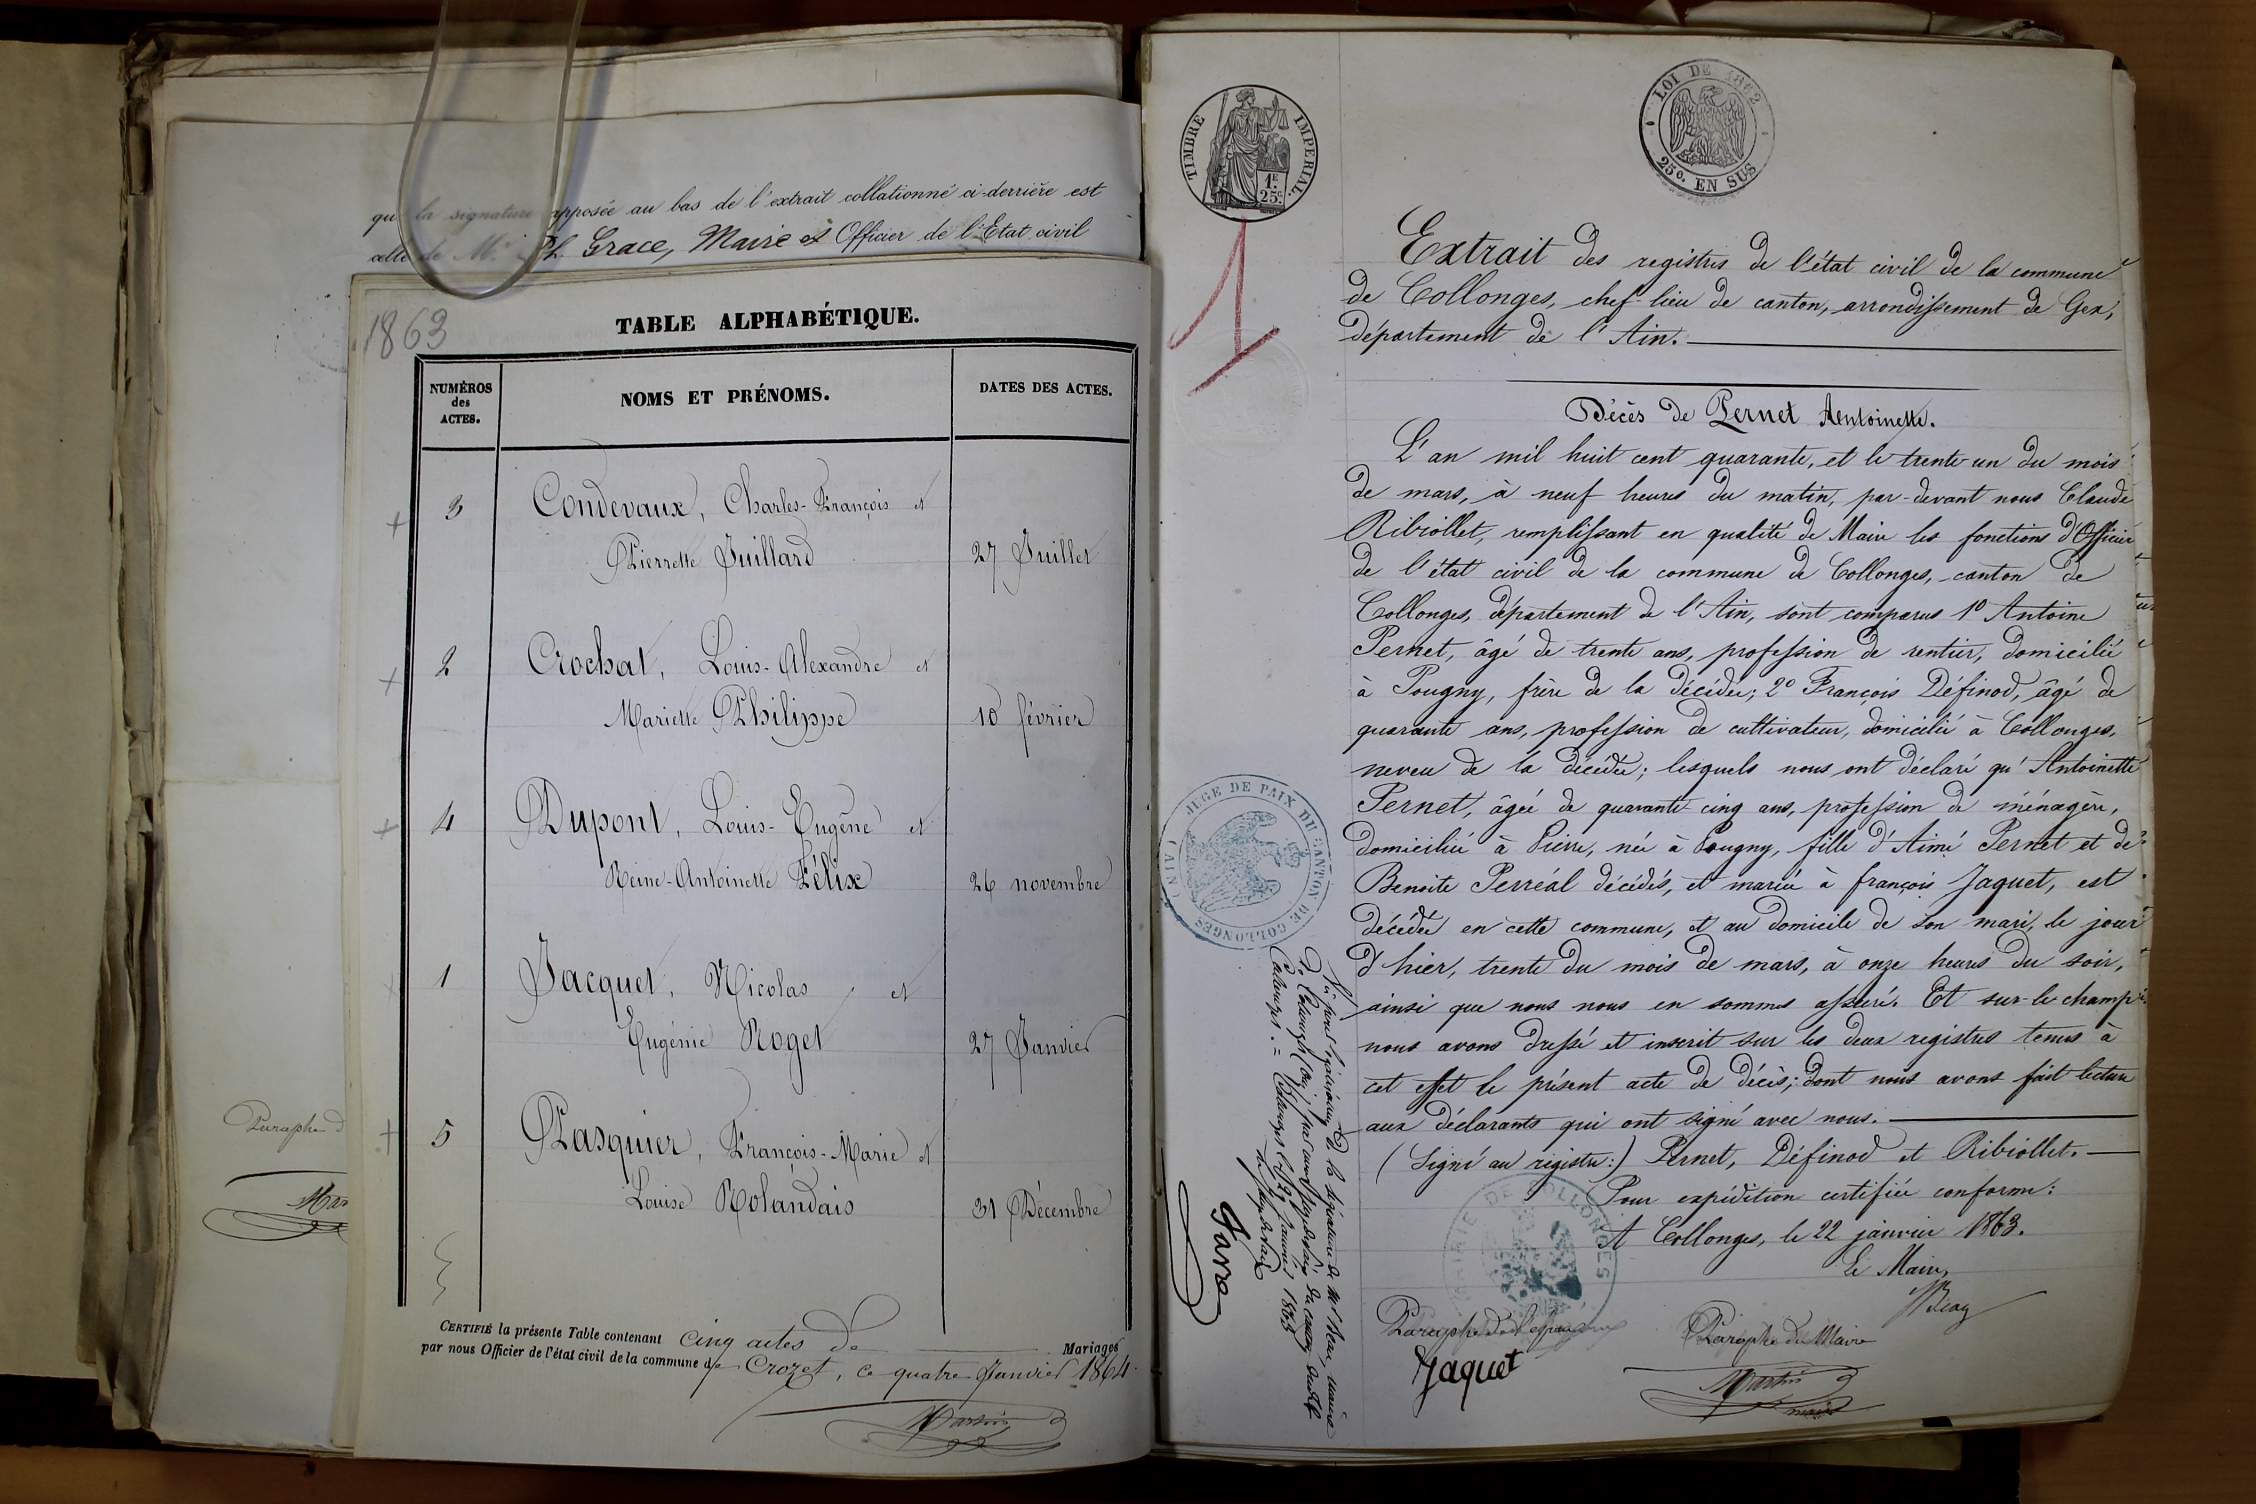 que la signature apposée au bas de l'extrait collationné ci-derrière est
celle de Mr. Ph. Grace, Maire et Officier de l'Etat civil
1863
TABLE ALPHABÉTIQUE.
NUMÉROS des ACTES. NOMS ET PRÉNOMS. DATES DES ACTES.
3 Condevaux, Charles-François et
Pierrette Juillard 27 Juillet
2 Crochat, Louis-Alexandre et
Mariette Philippe 10 février
4 Dupont, Louis-Eugène et
Reine-Antoinette Félix 26 novembre
1 Jacquet, Nicolas, et
Eugénie Roget 27 Janvier
5 Pasquier, François-Marie et
Louise Rolandais 31 Décembre
CERTIFIÉ la présente Table contenant cinq actes de Mariages
par nous Officier de l'état civil de la commune de Crozet, ce quatre Janvier 1864.
Martin
Paraphe d
Mar
TIMBRE IMPERIAL.
1F. 25c.
LOI DE 1862
25c. EN SUS
1
Extrait des registres de l'état civil de la commune
de Collonges, chef-lieu de canton, arrondissement de Gex,
département de l'Ain.
Décès de Pernet Antoinette.
L'an mil huit cent quarante, et le trente-un du mois
de mars, à neuf heures du matin, par-devant nous Claude
Ribiollet, remplissant en qualité de Maire les fonctions d'Officier
de l'état civil de la commune de Collonges, canton de
Collonges, département de l'Ain, sont comparus 1° Antoine
Pernet, âgé de trente ans, profession de rentier, domicilié
à Pougny, frère de la décédée; 2° François Définod, âgé de
quarante ans, profession de cultivateur, domicilié à Collonges,
neveu de la décédée; lesquels nous ont déclaré qu'Antoinette
Pernet, âgée de quarante-cinq ans, profession de ménagère,
domiciliée à Pierre, née à Pougny, fille d'Aimé Pernet et de
Benoite Perréal décédés, et mariée à françois Jaquet, est
décédée en cette commune, et au domicile de son mari, le jour
d'hier, trente du mois de mars, à onze heures du soir,
ainsi que nous nous en sommes assuré. Et sur-le-champ
nous avons dressé et inscrit sur les deux registres tenus à
cet effet le présent acte de décès; dont nous avons fait lecture
aux déclarants qui ont signé avec nous.
(Signé au registre:) Pernet, Définod et Ribiollet.
Pour expédition certifiée conforme:
A Collonges, le 22 janvier 1863.
Le Maire,
MAIRIE DE COLLONGES
Paraphe de l'époux
Jaquet
Paraphe du Maire
Martin
maire
JUGE DE PAIX DU CANTON DE COLLONGES (AIN)
Vu pour légalisation de la signature de Mr
Favre